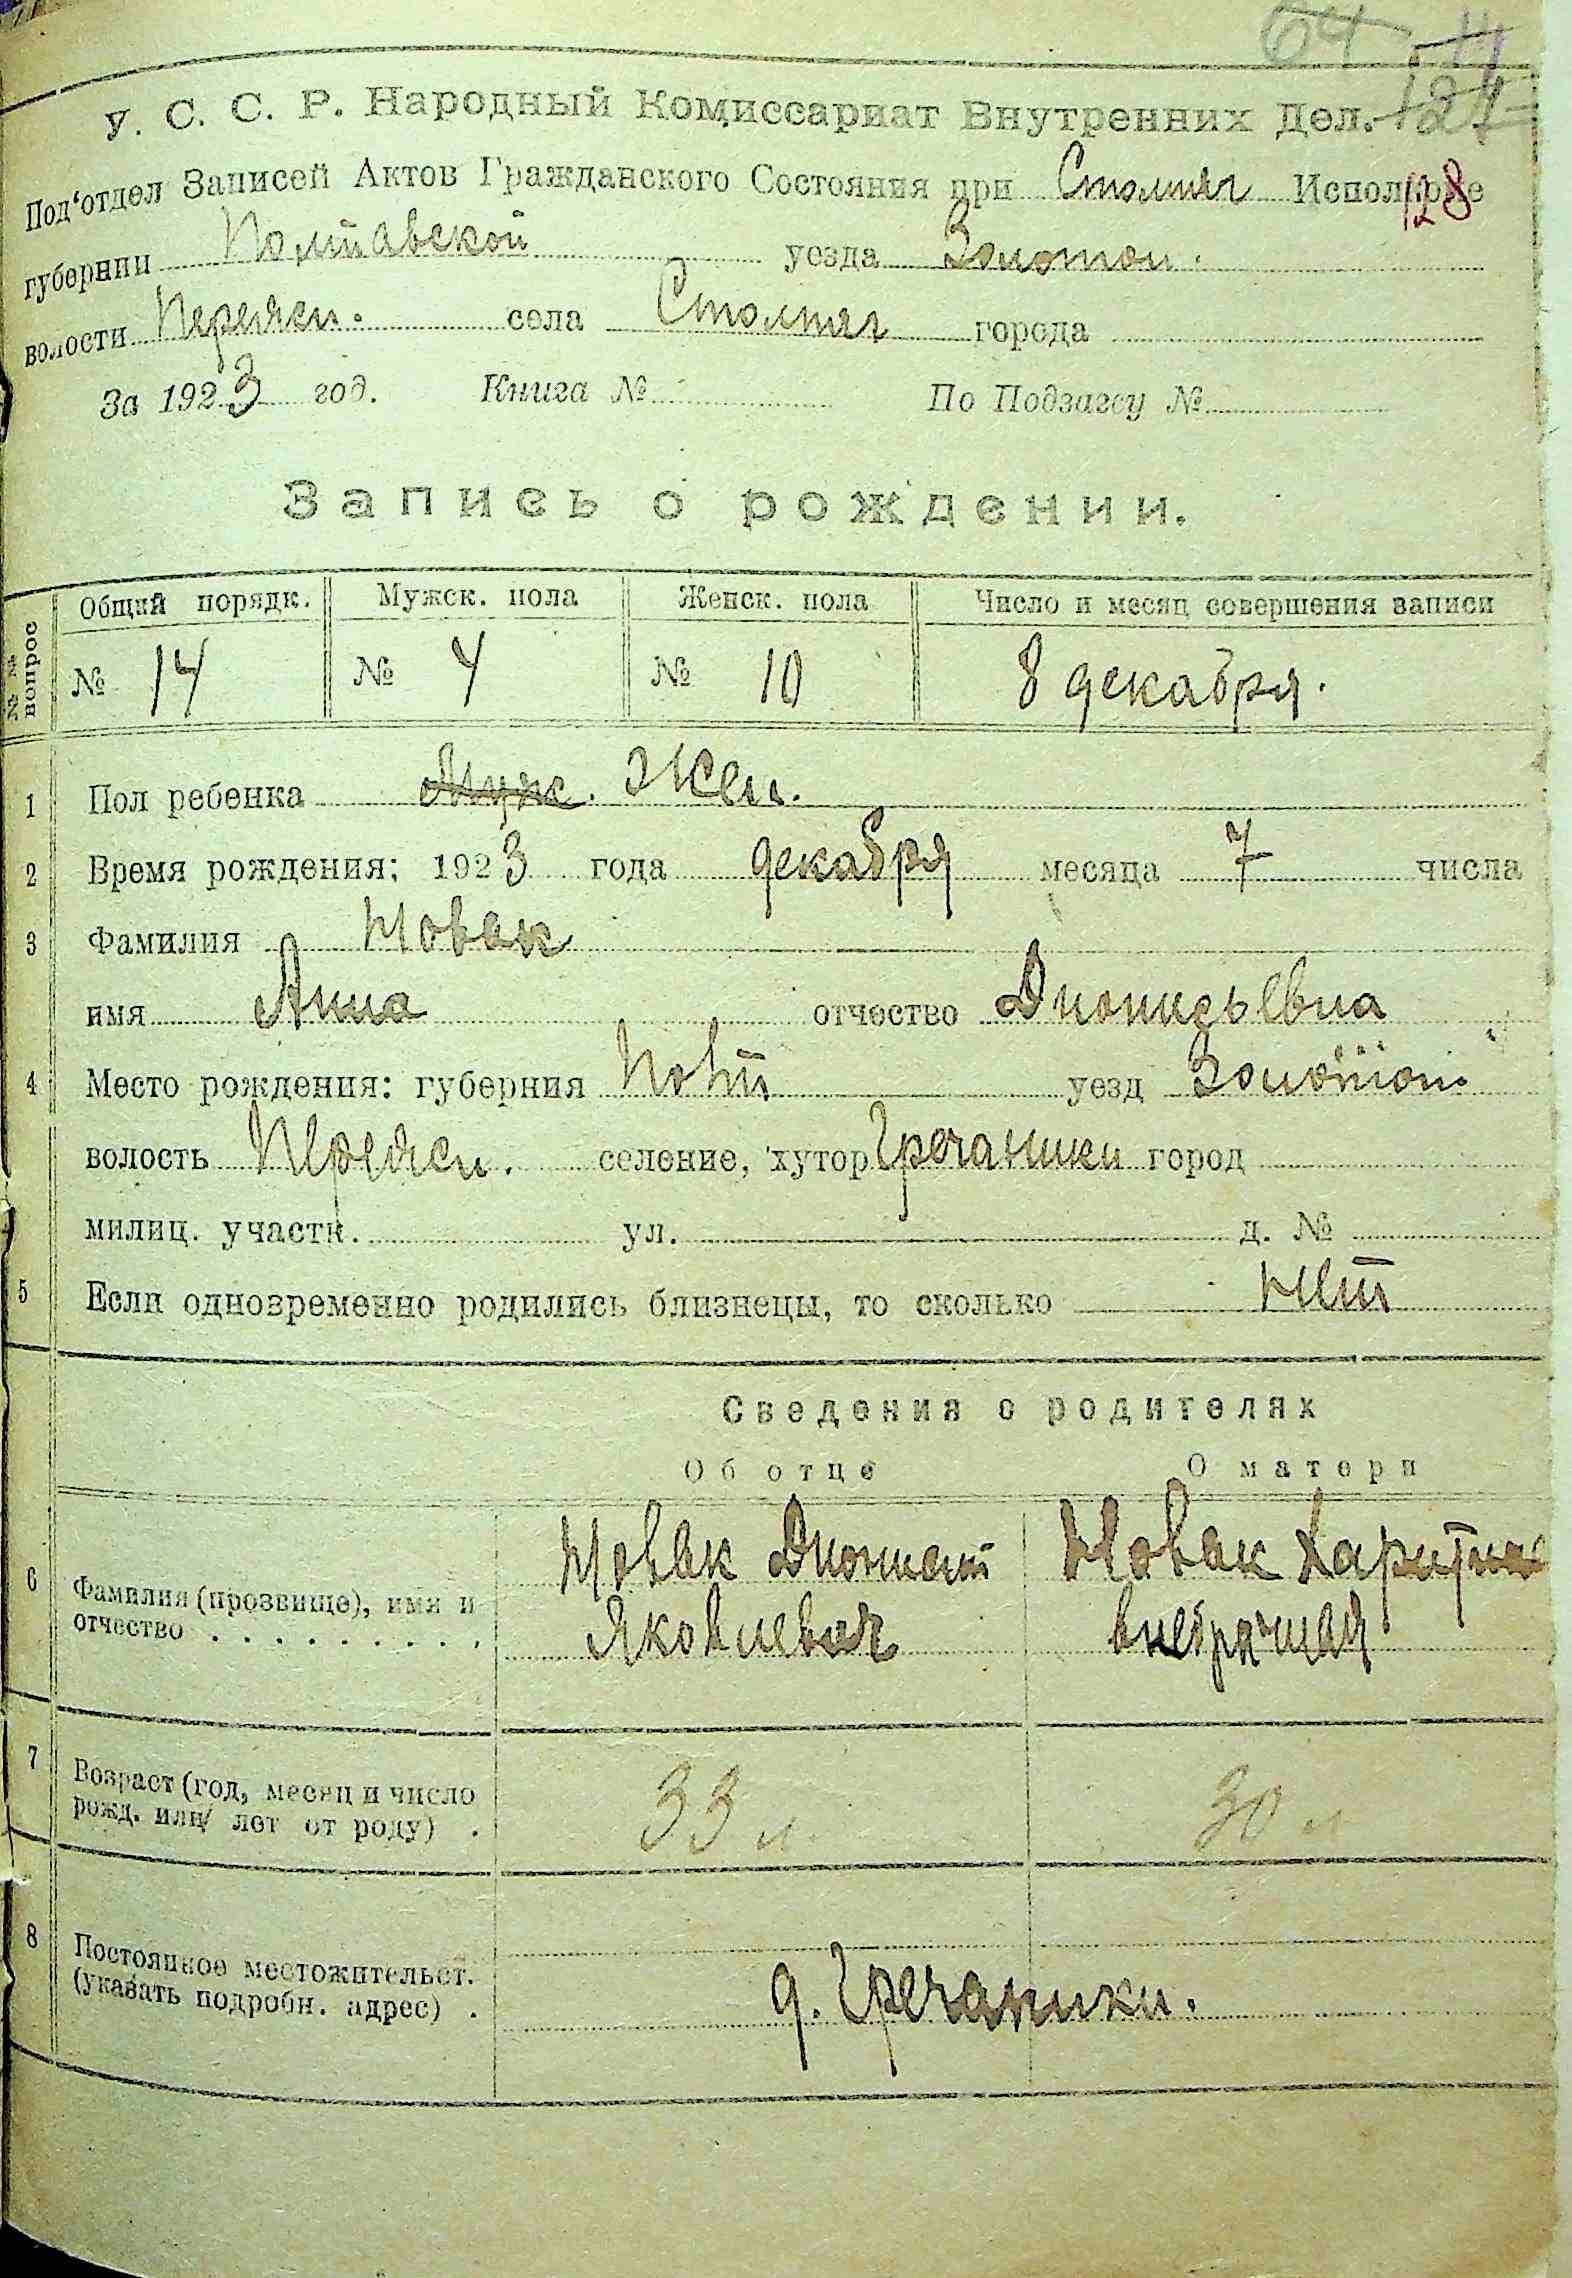 64
124
У. С. С. Р. Народный Комиссариат Внутренних Дел.
128
Под‘отдел Записей Актов Гражданского Состояния при Столпяг Исполкоме
губернии Полтавской уезда Золотон.
волости Переясл. села Столпяг города
За 1923 год. Книга № По Подзагсу №
Запись о рождении.
№№ вопрос
Общий порядк. Мужск. пола Женск. пола Число и месяц совершения записи
№ 14 № 4 № 10 8 декабря.
1 Пол ребенка Муж. Жен.
2 Время рождения: 1923 года декабря месяца 7 числа
3 Фамилия Новак
имя Анна отчество Дионисьевна
4 Место рождения: губерния Полт уезд Золотон.
волость Переясл. селение, хутор Гречаники город
милиц. участк. ул. д. №
5 Если одновременно родились близнецы, то сколько Нет
Сведения о родителях
Об отце О матери
6 Фамилия (прозвище), имя и отчество Новак Дионисий Новак
Яковлевич внебрачная
7 Возраст (год, месяц и число рожд. или лет от роду) 33 л 30 л
8 Постоянное местожительст. (указать подробн. адрес) д. Гречаники.